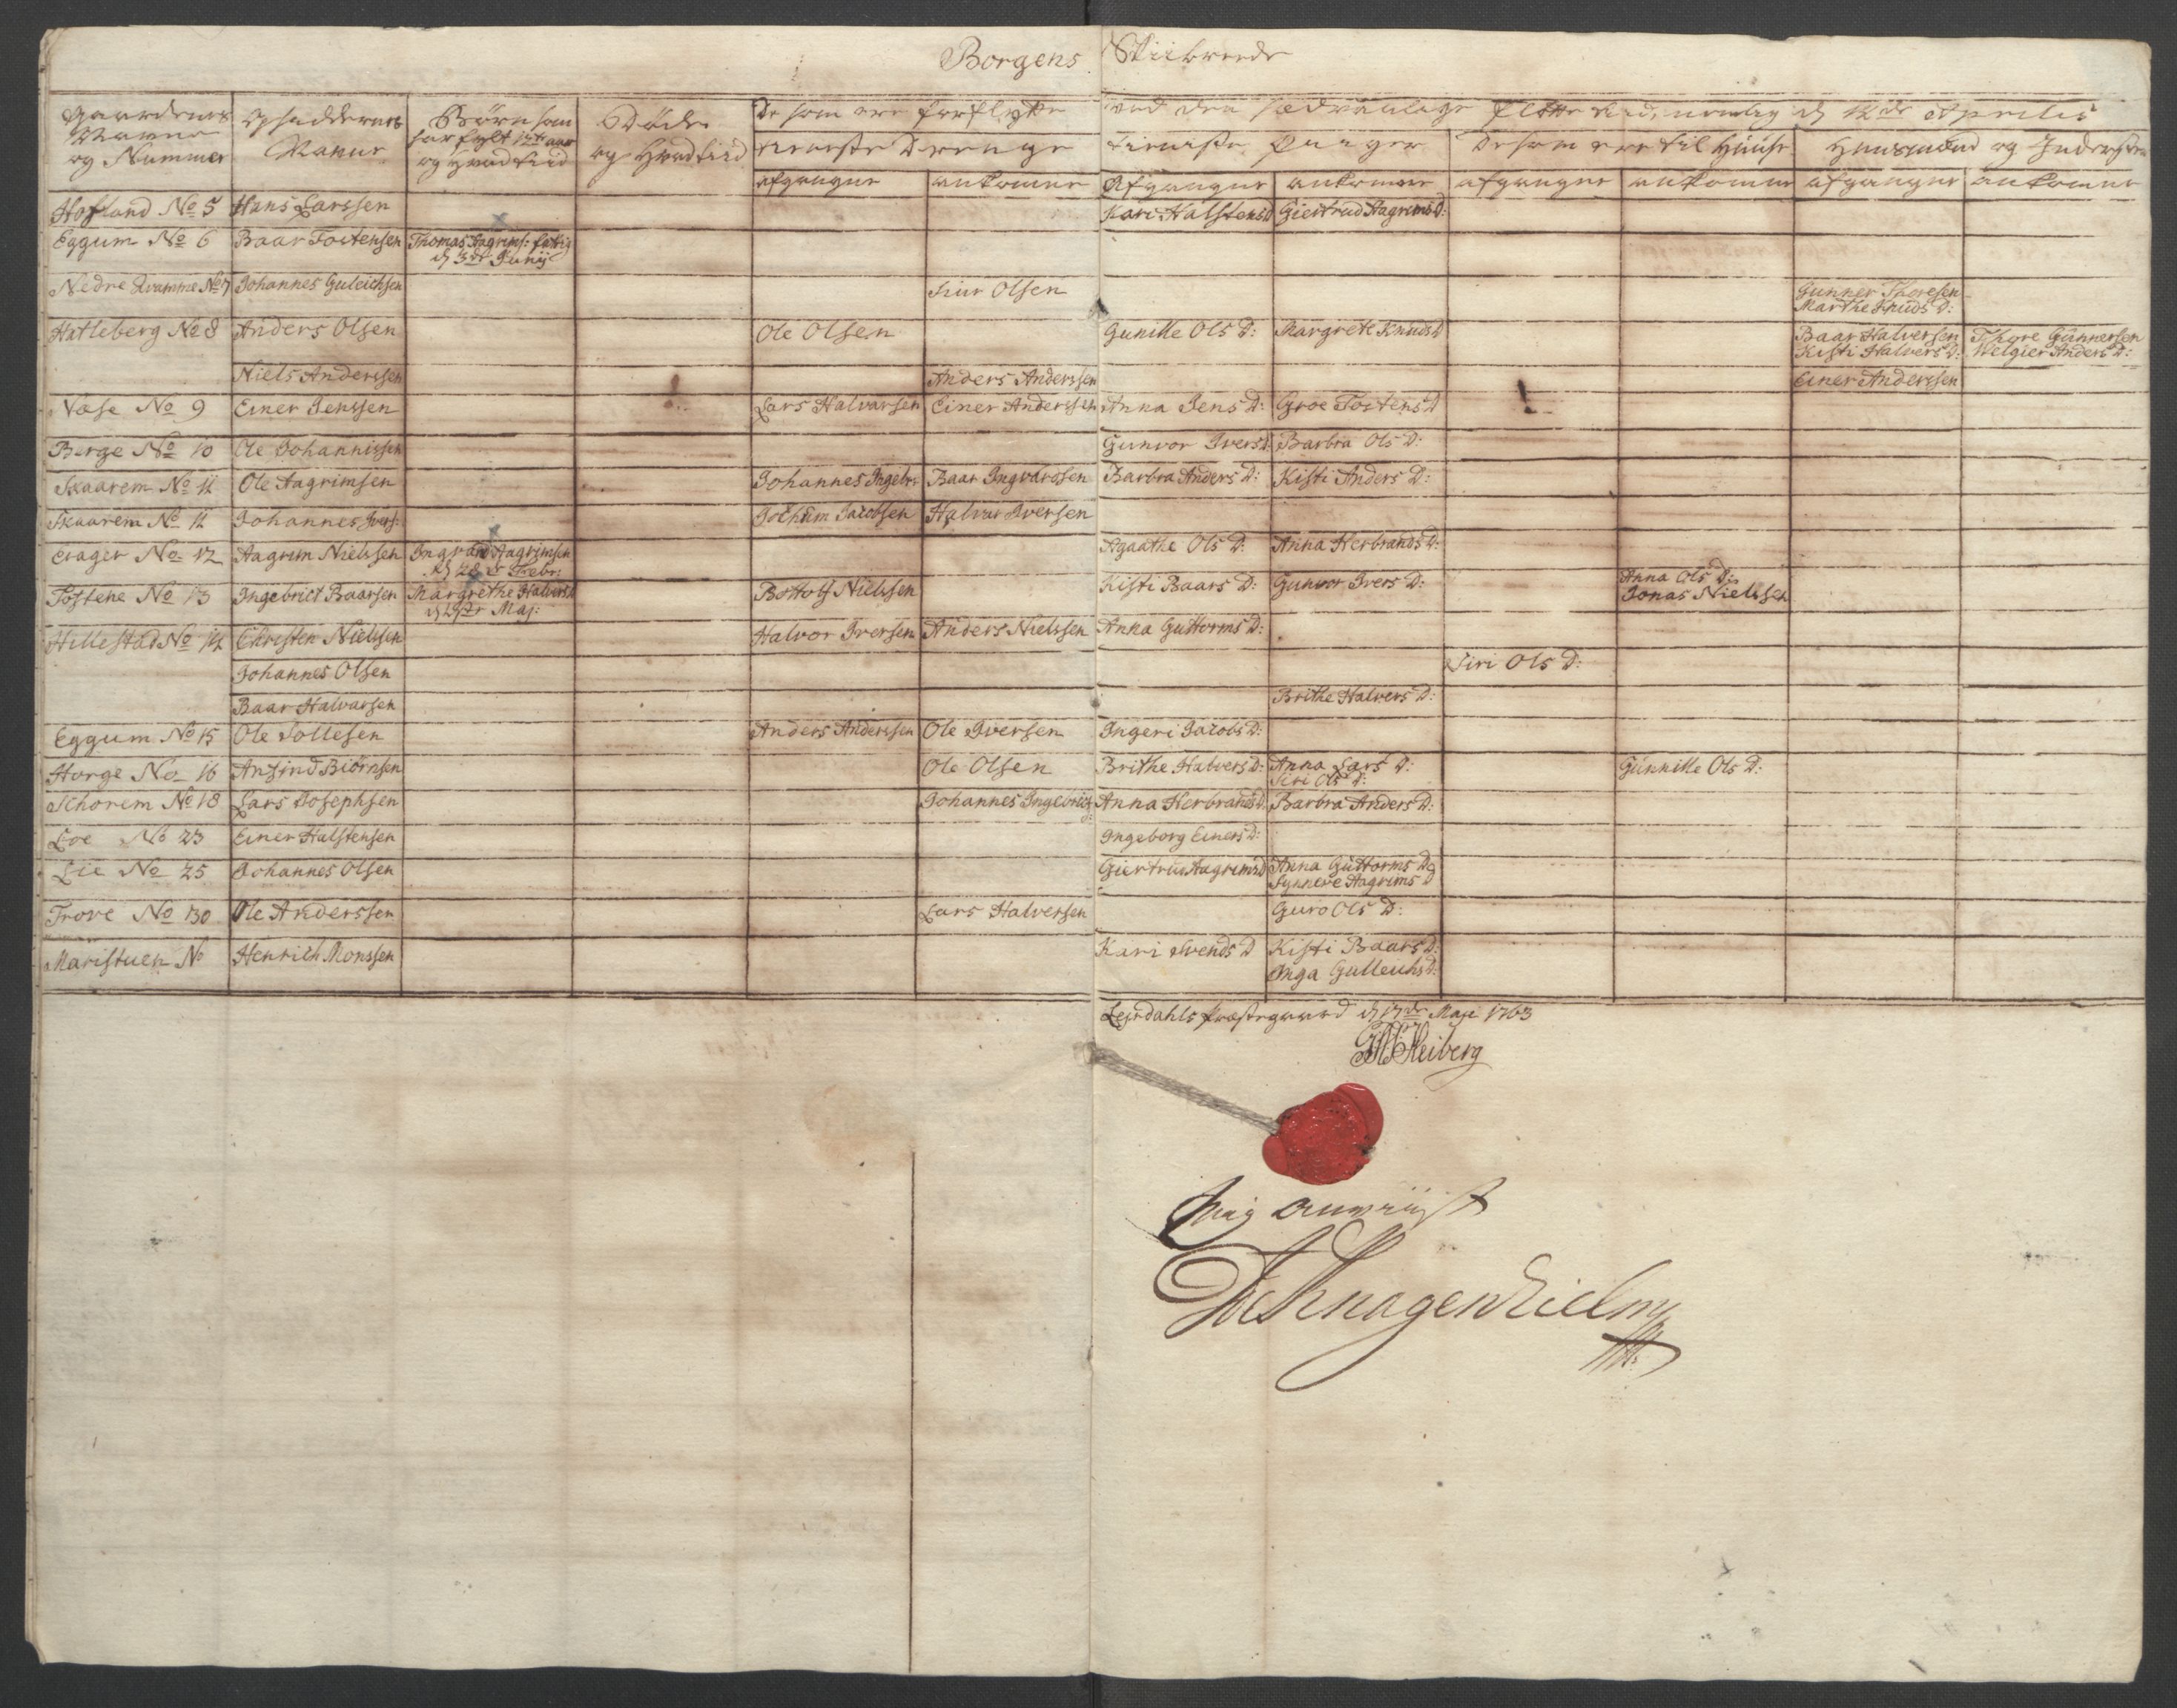 Borgens Skibrede
Gaardenes Navne og Nummer | Opsiddernes Navne | Börn som har fylt 12te aar og hvad tiid | Döde og hvad tiid | De som ere forflötte ved den sædvanlige flötte tiid, nemlig d 12te Aprilis
tieneste Drenge | tieniste Piiger | De som ere til Huuse | Huusmænd og Inderster
afgangne | ankomne | Afgangne | ankomne | afgangne | ankomne | afgangne | ankomne
Hofland No 5 | Hans Larssen | Kari Halstensd | Giertrud Aagrims D:
Eggum No 6 | Baar Tostensen | Thomas Aagrims:
d 3de Junij
Nedre Qvamme No 7 | Johannes Guleichsen | Siur Olsen | Gunner Thoresen
Marthe Knuds D:
Hatleberg No 8 | Anders Olsen | Ole Olsen | Gunille Ols D: | Margrete Knuds D | Baar Halversen | Thore Gunnersen
Kisti Halvers D: | Welgier Anders D:
Niels Anderssen | Anders Anderssen | Einer Anderssen
Næse No 9 | Einer Jenssen | Lars Halvarsen | Einer Anderssen | Anna Jens D: | Groe Tostens D
Berge No 10 | Ole Johannissen | Gunvor Ivers D: | Barbra Ols D:
Skaarem No 11 | Ole Aagrimsen | Johannes Ingebr: | Baar Ingvarssen | Barbra Anders D: | Kisti Anders D:
Skaarem No 11 | Johannes Ivers: | Jochum Jacobsen | Halvar Iversen
Erager No 12 | Aagrim Nielssen | Ingvard Aagrimsen | Agaathe Ols D: | Anna Herbrands D:
d 28 Febr:
Tostene No 13 | Ingebrict Baarsen | Margrethe Halvers D | Bottolf Nielssen | Kisti Baars D: | Gunvor Ivers D: | Anna Ols D:
Maj: | Jonas Nielssen
Hillestad No 14 | Christen Nielssen | Halvor Iversen | Anders Nielssen | Anna Guttorms D:
Johannes Olsen | Siri Ols D:
Baar Halvarsen | Brithe Halvers D:
Eggum No 15 | Ole Sollesen | Anders Anderssen | Ole Iversen | Ingeri Jacobs D:
Horge No 16 | Ansind Biörnsen | Ole Olsen | Brithe Halvers D: | Anna Lars D: | Gunnille Ols D:
Siri Ols D:
Schorem No 18 | Lars Josephsen | Johannes Ingebrict: | Anna Herbrands D: | Barbra Anders D:
Loe No 23 | Einer Halstensen | Ingeborg Einers D:
Lie No 25 | Johannes Olsen | Giertrud Aagrims D | Anna Guttorms D og
Synneve Aagrims D
Trove No 30 | Ole Anderssen | Lars Halversen | Guro Ols D:
Maristuen No | Henrich Monssen | Kari Svends D | Kisti Baars D:
Inga Gulleichs D:
Leirdahls præstegaard d 17de Maji 1763
Heiberg
Mig anviist
Knagenhielm